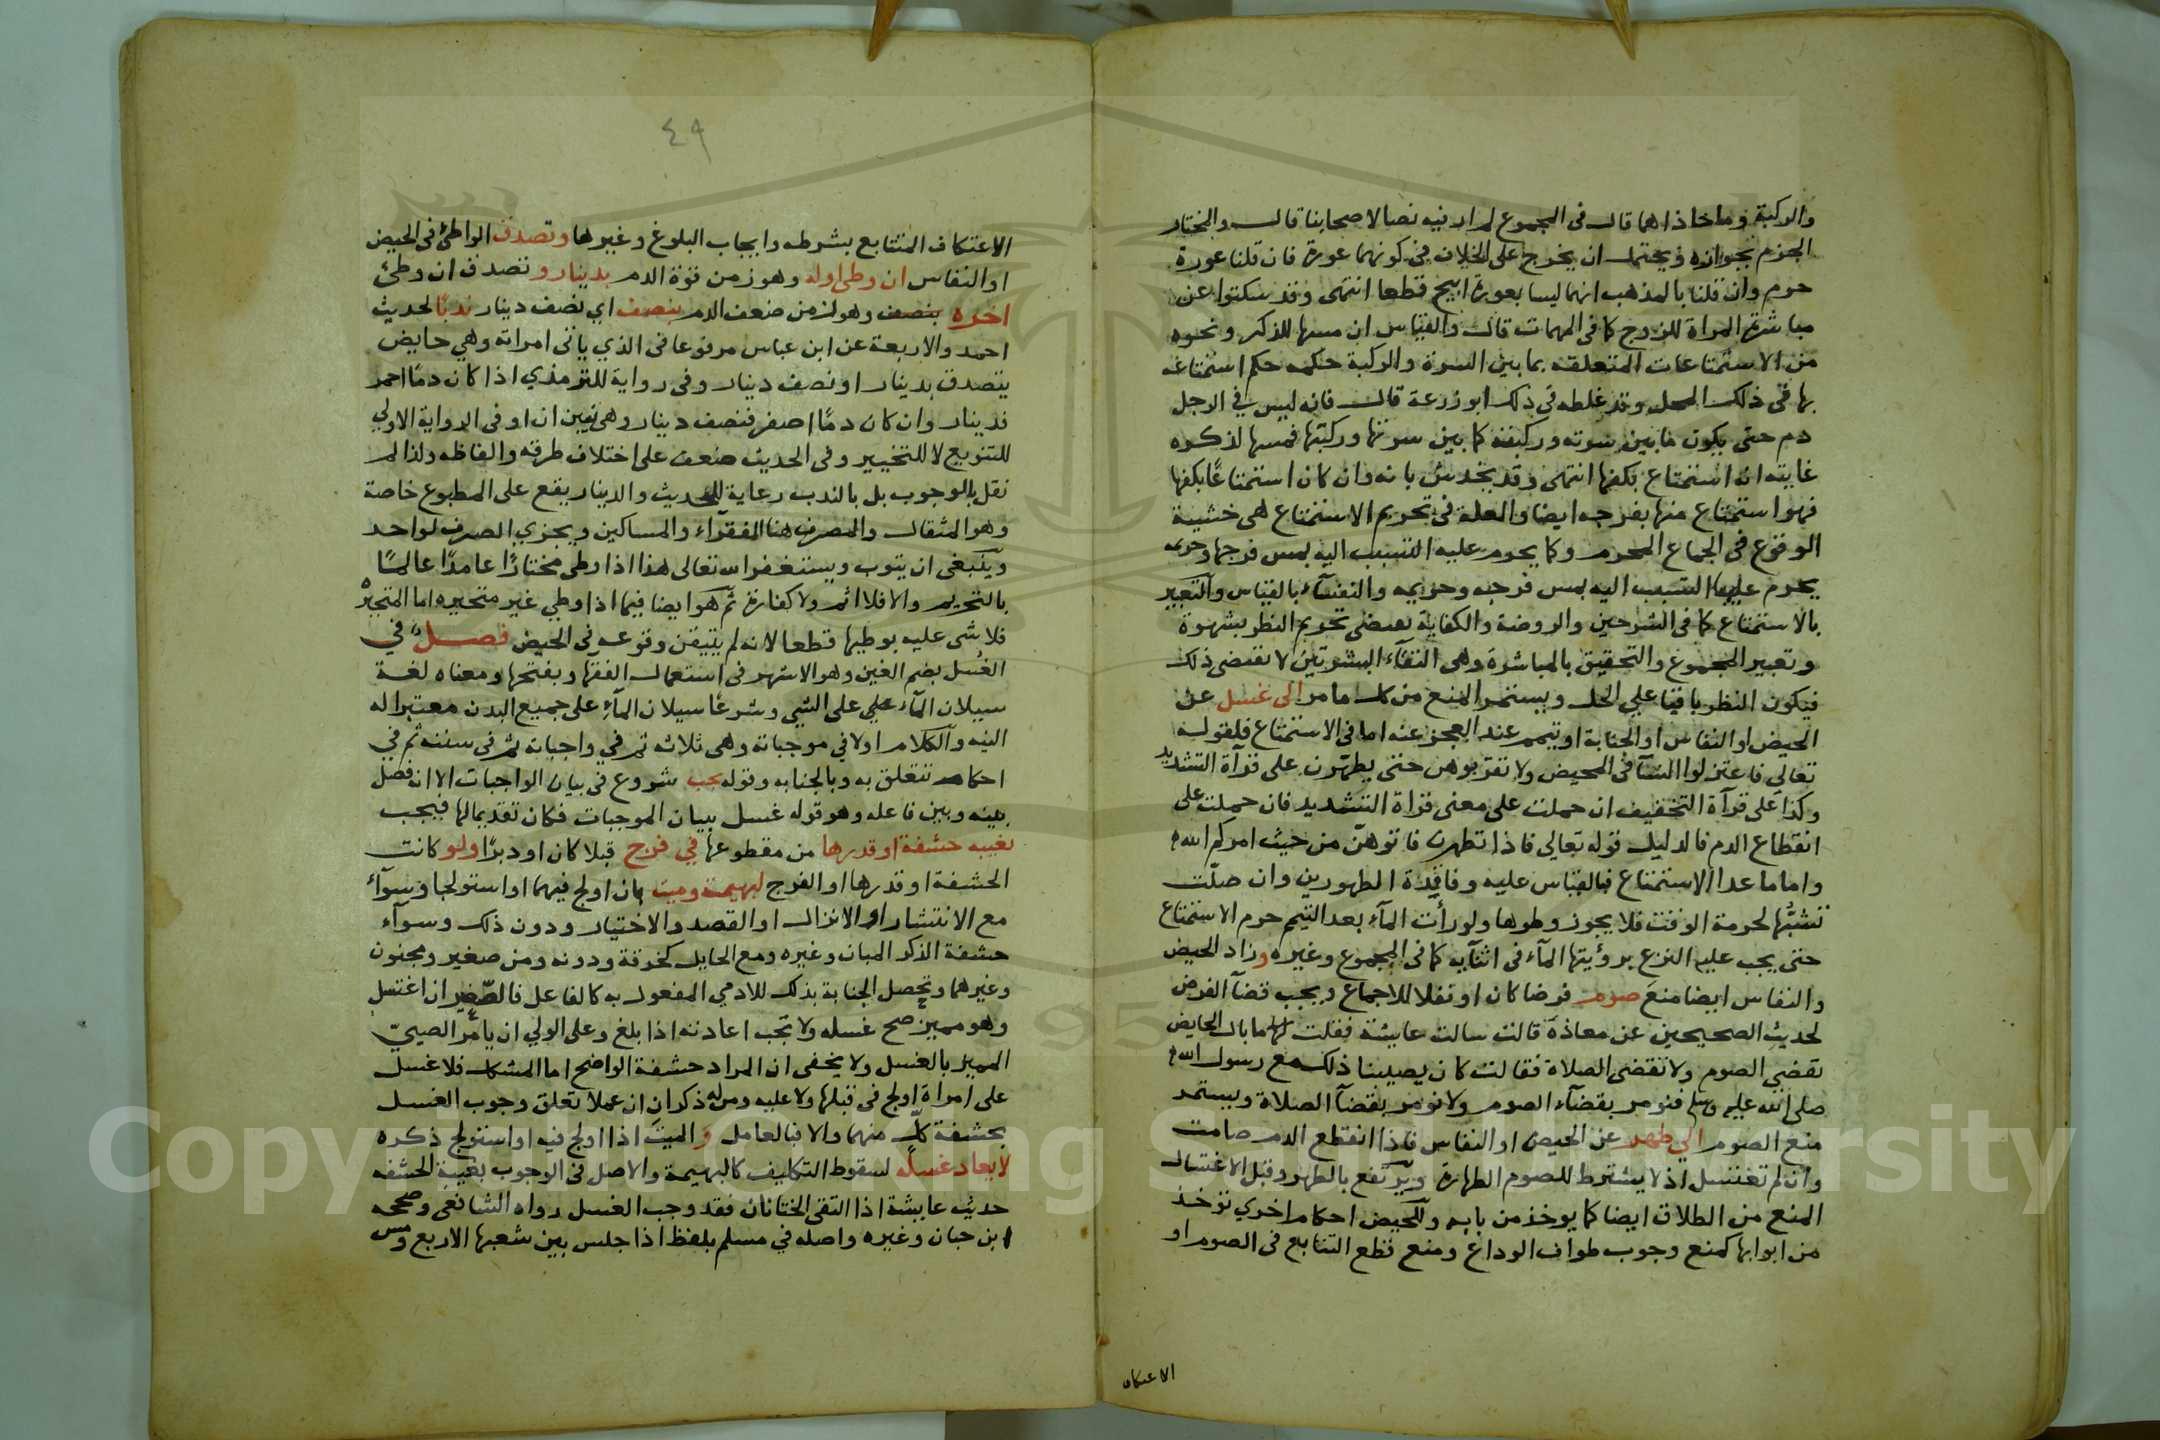 والركبة وما حاذاهما قال في المجموع لم ار فيه نصا لاصحابنا قال والمختار
الجزم بجوازه ويحتمل ان يخرج على الخلاف في كونهما عورة فان قلنا عورة
حرم وان قلنا بالمذهب انهما ليسا بعورة ابيح قطعا انتهى وقد سكتوا عن
مباشرة المراة للزوج كما في المهمات قال والقياس ان مسها للذكر ونحوه
من الاستمتاعات المتعلقه بما بين السرة والركبة حكمه حكم استمتاعه
بها في ذلك المحل وقد غلطه في ذلك ابو زرعة قال فانه ليس في الرجل
دم حتى يكون ما بين سرته وركبته كما بين سرتها وركبتها فمسها لذكره
غايته انه استمتاع بكفها انتهى وقد يخدش بانه وان كان استمتاعًا بكفها
فهو استمتاع منها بفرجه ايضا والعلة في تحريم الاستمتاع هي خشية
الوقوع في الجماع المحرم وكما يحرم عليه التسبب اليه بمس فرجها وحريمه
يحرم عليها التسبب اليه بمس فرجه وحريمه والتعبير بالقياس والتعبير
بالاستمتاع كما في الشرحين والروضة والكفاية يقتضي تحريم النظر بشهوة
وتعبير المجموع والتحقيق بالمباشرة وهي التقآء البشرتين لا يقتضي ذلك
فيكون النظر باقيا علي الحل ويستمر المنع من كل ما مر الى غسل عن
الحيض او النفاس او الجنابة او تيمم عند العجز عنه اما في الاستمتاع فلقوله
تعالى فاعتزلوا النسآ في المحيض ولا تقربوهن حتى يطهرن على قرآة التشديد
وكذا على قرآة التخفيف ان حملت على معنى قراة التشديد فان حملت على
انقطاع الدم فالدليل قوله تعالى فاذا تطهرن فاتوهنّ من حيث امركم الله
واما ما عدا الاستمتاع فبالقياس عليه وفاقدة الطهورين وان صلّت
تشبُّها لحرمة الوقت فلا يجوز وطوها ولو رأت المآء بعد التيمم حرم الاستمتاع
حتى يجب عليه النزع برؤيتها المآء في اثنآيه كما في المجموع وغيره وزاد الحيض
والنفاس ايضا منعَ صوم فرضا كان او نفلا للاجماع ويجب قضآ الفرض
لحديث الصحيحين عن معاذة قالت سالت عايشة فقلت لها ما بال الحايض
تقضي الصوم ولا تقضي الصلاة فقالت كان يصيبنا ذلك مع رسول الله
صلى الله عليه وسلم فنومر بقضآء الصوم ولا نومر بقضآ الصلاة ويستمر
منع الصوم الي طهر عن الحيض او النفاس فاذا انقطع الدم صامت
وان لم تغتسل اذ لا يشترط للصوم الطهارة ويرتفع بالطهر وقبل الاغتسال
المنع من الطلاق ايضا كما يوخذ من بابه وللحيض احكام اخري توخذ
من ابوابها كمنع وجوب طواف الوداع ومنع قطع التتابع في الصوم او
الاعتكاف
٤٩
الاعتكاف المتتابع بشرطه وايجاب البلوغ وغيرها وتصدق الواطئ في الحيض
او النفاس ان وطى اوله وهو زمن قوة الدم بدينار وتصدق ان وطئ
اخره بنصف وهو زمن ضعف الدم بنصف اي نصف دينار ندبًا لحديث
احمد والاربعة عن ابن عباس مرفوعا في الذي ياتي امراته وهي حايض
يتصدق بدينار او نصف دينار وفي رواية للترمذي اذا كان دمًا احمر
فدينار وان كان دمًا اصفر فنصف دينار وهي تبين ان او في الرواية الاولي
للتنويع لا للتخيير وفي الحديث ضعف على اختلاف طرقه والفاظه ولذا لم
نقل بالوجوب بل بالندب رعاية للحديث والدينار يقع على المطبوع خاصة
وهو المثقال والمصرف هنا الفقرآء والمساكين ويجزي الصرف لواحد
وينبغي ان يتوب ويستغفر الله تعالى هذا اذا وطي مختارًا عامدًا عالمًا
بالتحريم والا فلا اثم ولا كفارة ثم هو ايضا فيما اذا وطي غير متحيره اما المتحيره
فلا شي عليه بوطيها قطعا لانه لم يتيقن وقوعه في الحيض فصل في
الغُسل بضم الغين وهو الاشهر في استعمال الفقها وبفتحها ومعناه لغة
سيلان المآء علي الشي وشرعًا سيلان المآء على جميع البدن معتبرا له
النيه والكلام اولا في موجباته وهي ثلاثه ثم في واجباته ثم في سننه ثم في
احكام تتعلق به وبالجنابه وقوله يجب شروع في بيان الواجبات الا انه فصل
بينه وبين فاعله وهو قوله غسل ببيان الموجبات فكان تقديما لها فيجب
بغيبه حشفة او قدرها من مقطوعها في فرج قبلا كان او دبرًا ولو كانت
الحشفة او قدرها او الفرج لبهيمة وميت بان اولج فيهما او استولجا وسوآء
مع الانتشار او الانزال او القصد والاختيار ودون ذلك وسوآء
حشفة الذكر المبان وغيره ومع الحايل كخرقة ودونه ومن صغير ومجنون
وغيرهما وتحصل الجنابة بذلك للادمي المفعول به كالفاعل فالصغير ان اغتسل
وهو مميز صح غسله ولا تجب اعادته اذا بلغ وعلى الولي ان يامر الصبيّ
المميز بالغسل ولا يخفى ان المراد حشفة الواضح اما المشكل فلا غسل
على امراة اولج في قبلها ولا عليه ومن له ذكران ان عملا تعلق وجوب الغسل
بحشفة كلّ منهما والا فبالعامل و الميت اذا اولج فيه او استولج ذكره
لا يعاد غسله لسقوط التكليف كالبهيمة والاصل في الوجوب بغيبة الحشفه
حديث عايشة اذا التقى الختانان فقد وجب الغسل رواه الشافعي وصححه
ابن حبان وغيره واصله في مسلم بلفظ اذا جلس بين شعبها الاربع ومس
Copyright © King Saud University